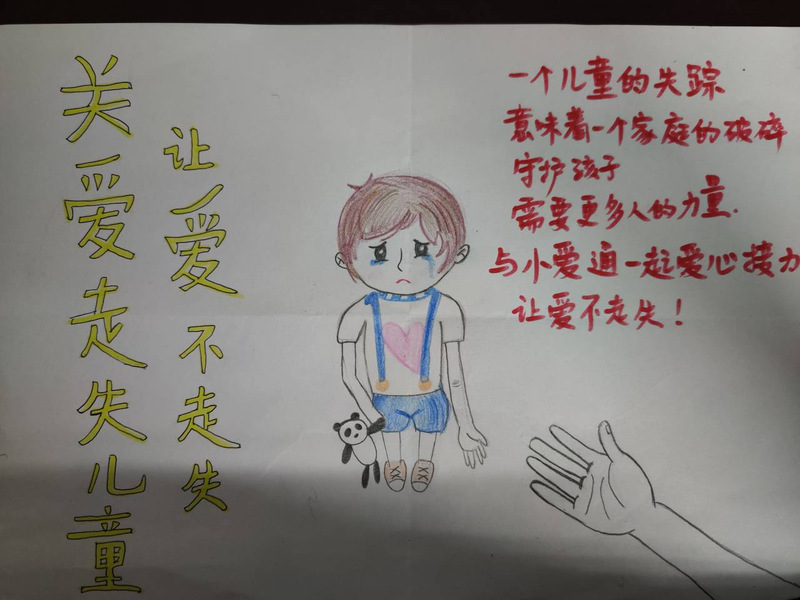 关爱走失儿童
让爱不走失
一个儿童的失踪
意味着一个家庭的破碎
守护孩子
需要更多人的力量.
与小爱通一起爱心接力
让爱不走失!